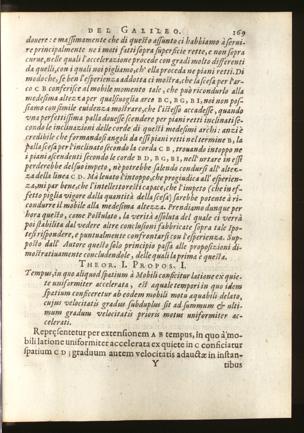 DEL GALILEO. 169
douere: e massimamente che di questo assunto ci habbiamo à serui-
re principalmente ne i moti fatti sopra superficie rette, e non sopra
curue, nelle quali l'accelerazione procede con gradi molto differenti
da quelli, con i quali noi pigliamo, ch' ella proceda ne piani retti. Di
modoche, se ben l'esperienza addotta ci mostra, che la scesa per l'ar-
co CB conferisce al mobile momento tale, che può ricondurlo alla
medesima altezza per qualsiuoglia arco BC, BG, BI, noi non pos-
siamo con simile euidenza mostrare, che l'istesso accadesse, quando
vna perfettissima palla douesse scendere per piani retti inclinati se-
condo le inclinazioni delle corde di questi medesimi archi: anzi è
credibile che formandosi angoli da essi piani retti nel termine B, la
palla scesa per l'inclinato secondo la corda CB, trouando intoppo ne
i piani ascendenti secondo le corde BD, BG, BI, nell'urtare in essi
perderebbe del suo impeto, nè potrebbe salendo condursi all' altez-
za della linea CD. Mà leuato l'intoppo, che progiudica all' esperien-
za, mi par bene, che l'intelletto resti capace, che l'impeto (che in ef-
fetto piglia vigore dalla quantità della scesa) sarebbe potente à ri-
condurre il mobile alla medesima altezza. Prendiamo dunque per
hora questo, come Postulato, la verità assoluta del quale ci verrà
poi stabilita dal vedere altre conclusioni fabbricate sopra tale Ipo-
tesi rispondere, e puntualmente confrontarsi con l'esperienza. Sup-
posto dall' Autore questo solo principio passa alle proposizioni di-
mostratiuamente concludendole, delle quali la prima è questa.
THEOR. I. PROPOS. I.
Tempus, in quo aliquod spatium à Mobili conficitur latione ex quie-
te uniformiter accelerata, est æquale tempori in quo idem
spatium conficeretur ab eodem mobili motu æquabili delato,
cuius velocitatis gradus subduplus sit ad summum & ulti-
mum gradum velocitatis prioris motus uniformiter ac-
celerati.
Repræsentetur per extensionem AB tempus, in quo à mo-
bili latione uniformiter accelerata ex quiete in C conficiatur
spatium CD; graduum autem velocitatis adauctæ in instan-
Y tibus